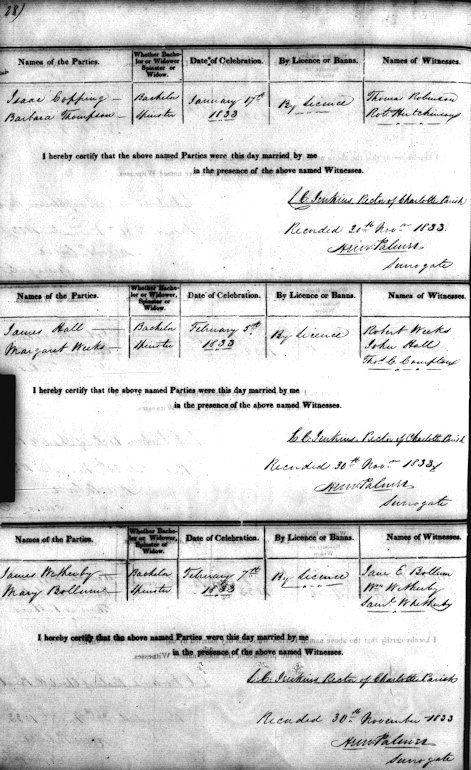 281
Names of the Parties.
Whether Bachelor or Widower, Spinster or Widow.
Date of Celebration.
By Licence or Banns.
Names of Witnesses.
Isaac Copping — Bachelor January 17th By Licence Thomas Robinson
Barbara Thompson — Spinster 1833 Robt Hutchinson
I hereby certify that the above named Parties were this day married by me
in the presence of the above named Witnesses.
L C Jenkins Rector of Charlotte Parish
Recorded 30th Novr 1833.
Henr Palmer
Surrogate
Names of the Parties.
Whether Bachelor or Widower, Spinster or Widow.
Date of Celebration.
By Licence or Banns.
Names of Witnesses.
James Hall — Bachelor February 5th By Licence Robert Weeks
Margaret Weeks — Spinster 1833 John Hall
Thos C Compton
I hereby certify that the above named Parties were this day married by me
in the presence of the above named Witnesses.
L C Jenkins Rector of Charlotte Parish
Recorded 30th Novr 1833
Henr Palmer
Surrogate
Names of the Parties.
Whether Bachelor or Widower, Spinster or Widow.
Date of Celebration.
By Licence or Banns.
Names of Witnesses.
James Wetherby — Bachelor February 7th By Licence Jane E. Bollum
Mary Bollum — Spinster 1833 Wm Wetherby
Saml Whetherby
I hereby certify that the above named Parties were this day married by me
in the presence of the above named Witnesses.
L C Jenkins Rector of Charlotte Parish
Recorded 30th November 1833
Henr Palmer
Surrogate